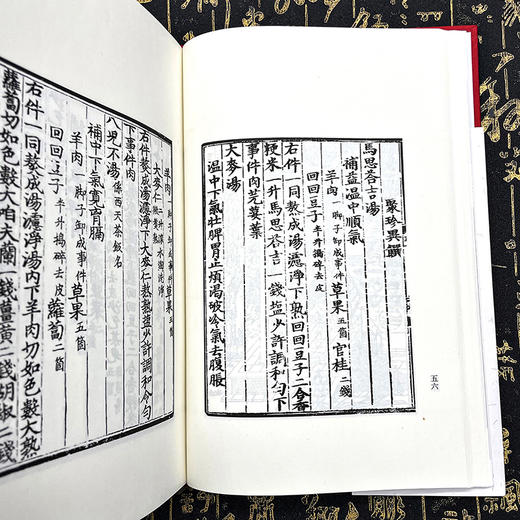 聚珍異饌
馬思荅吉湯
補益温中順氣
羊肉一脚子卸成事件草果五箇官桂二錢
回回豆子半升搗碎去皮
右件一同熬成湯濾淨下熟回回豆子二合香
粳米一升馬思荅吉一錢塩少許調和匀下
事件肉芫荽葉
大麥湯
温中下氣壯脾胃止煩渴破冷氣去腹脹
五六
羊肉一脚子卸成事件草果五箇
大麥仁
右件熬成湯濾淨下大麥仁熬熟塩少許調和令匀
下事件肉
八児不湯係西天茶飯名
補中下氣寛胷膈
羊肉一脚子卸成事件草果五箇
回回豆子半升搗碎去皮蘿蔔二箇
右件一同熬成湯濾淨湯内下羊肉切如色數大熟
蘿蔔切如色數大咱夫蘭一錢薑黄二錢胡椒二錢